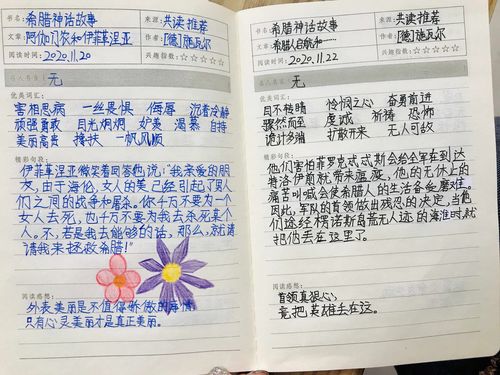 书名：希腊神话故事
来源：共读推荐
文章：阿伽门农和伊菲革涅亚
作者：[德]施瓦尔
阅读时间：2020.11.20
兴趣指数：☆☆☆☆☆
无
优美词汇：
害相思病 一丝畏惧 侮辱 沉着冷静
顽强勇敢 目光炯炯 妒责 温慕 自持
美丽高贵 搀扶 一帆风顺
精彩句段：
伊菲革涅亚微笑着回答他说："我亲爱的朋
友，由于海伦，女人的美已经引起了男人
们之间的战争和屠杀。你千万不要为一个
女人去死，也千万不要为我去杀死某个
人。不，若是我去能够的话，那么，就请
请我来拯救希腊！"
阅读感想：
外表美丽是不值得骄傲的事情，
只有心灵美丽才是真正美丽。
书名：希腊神话故事
来源：共读推荐
文章：希腊人启航和……
作者：[德]施瓦尔
阅读时间：2020.11.22
兴趣指数：☆☆☆☆☆
无
优美词汇：
目不转睛 怜悯之心 奋勇前进
骤然而至 虔诚 祈祷 恐怖
诡计多端 扩散开来 无人可敌
精彩句段：
他们害怕菲罗克忒忒斯会给全军在到达
特洛伊前就带来瘟疫，他的无休止的
痛苦叫喊会使希腊人的生活备受磨难。
因此，军队的首领做出残忍的决定，当他
们途经楞诺斯岛荒无人迹的海滩时，就
把他丢在这里了。
阅读感想：
首领真狠心，
竟把英雄丢在这。